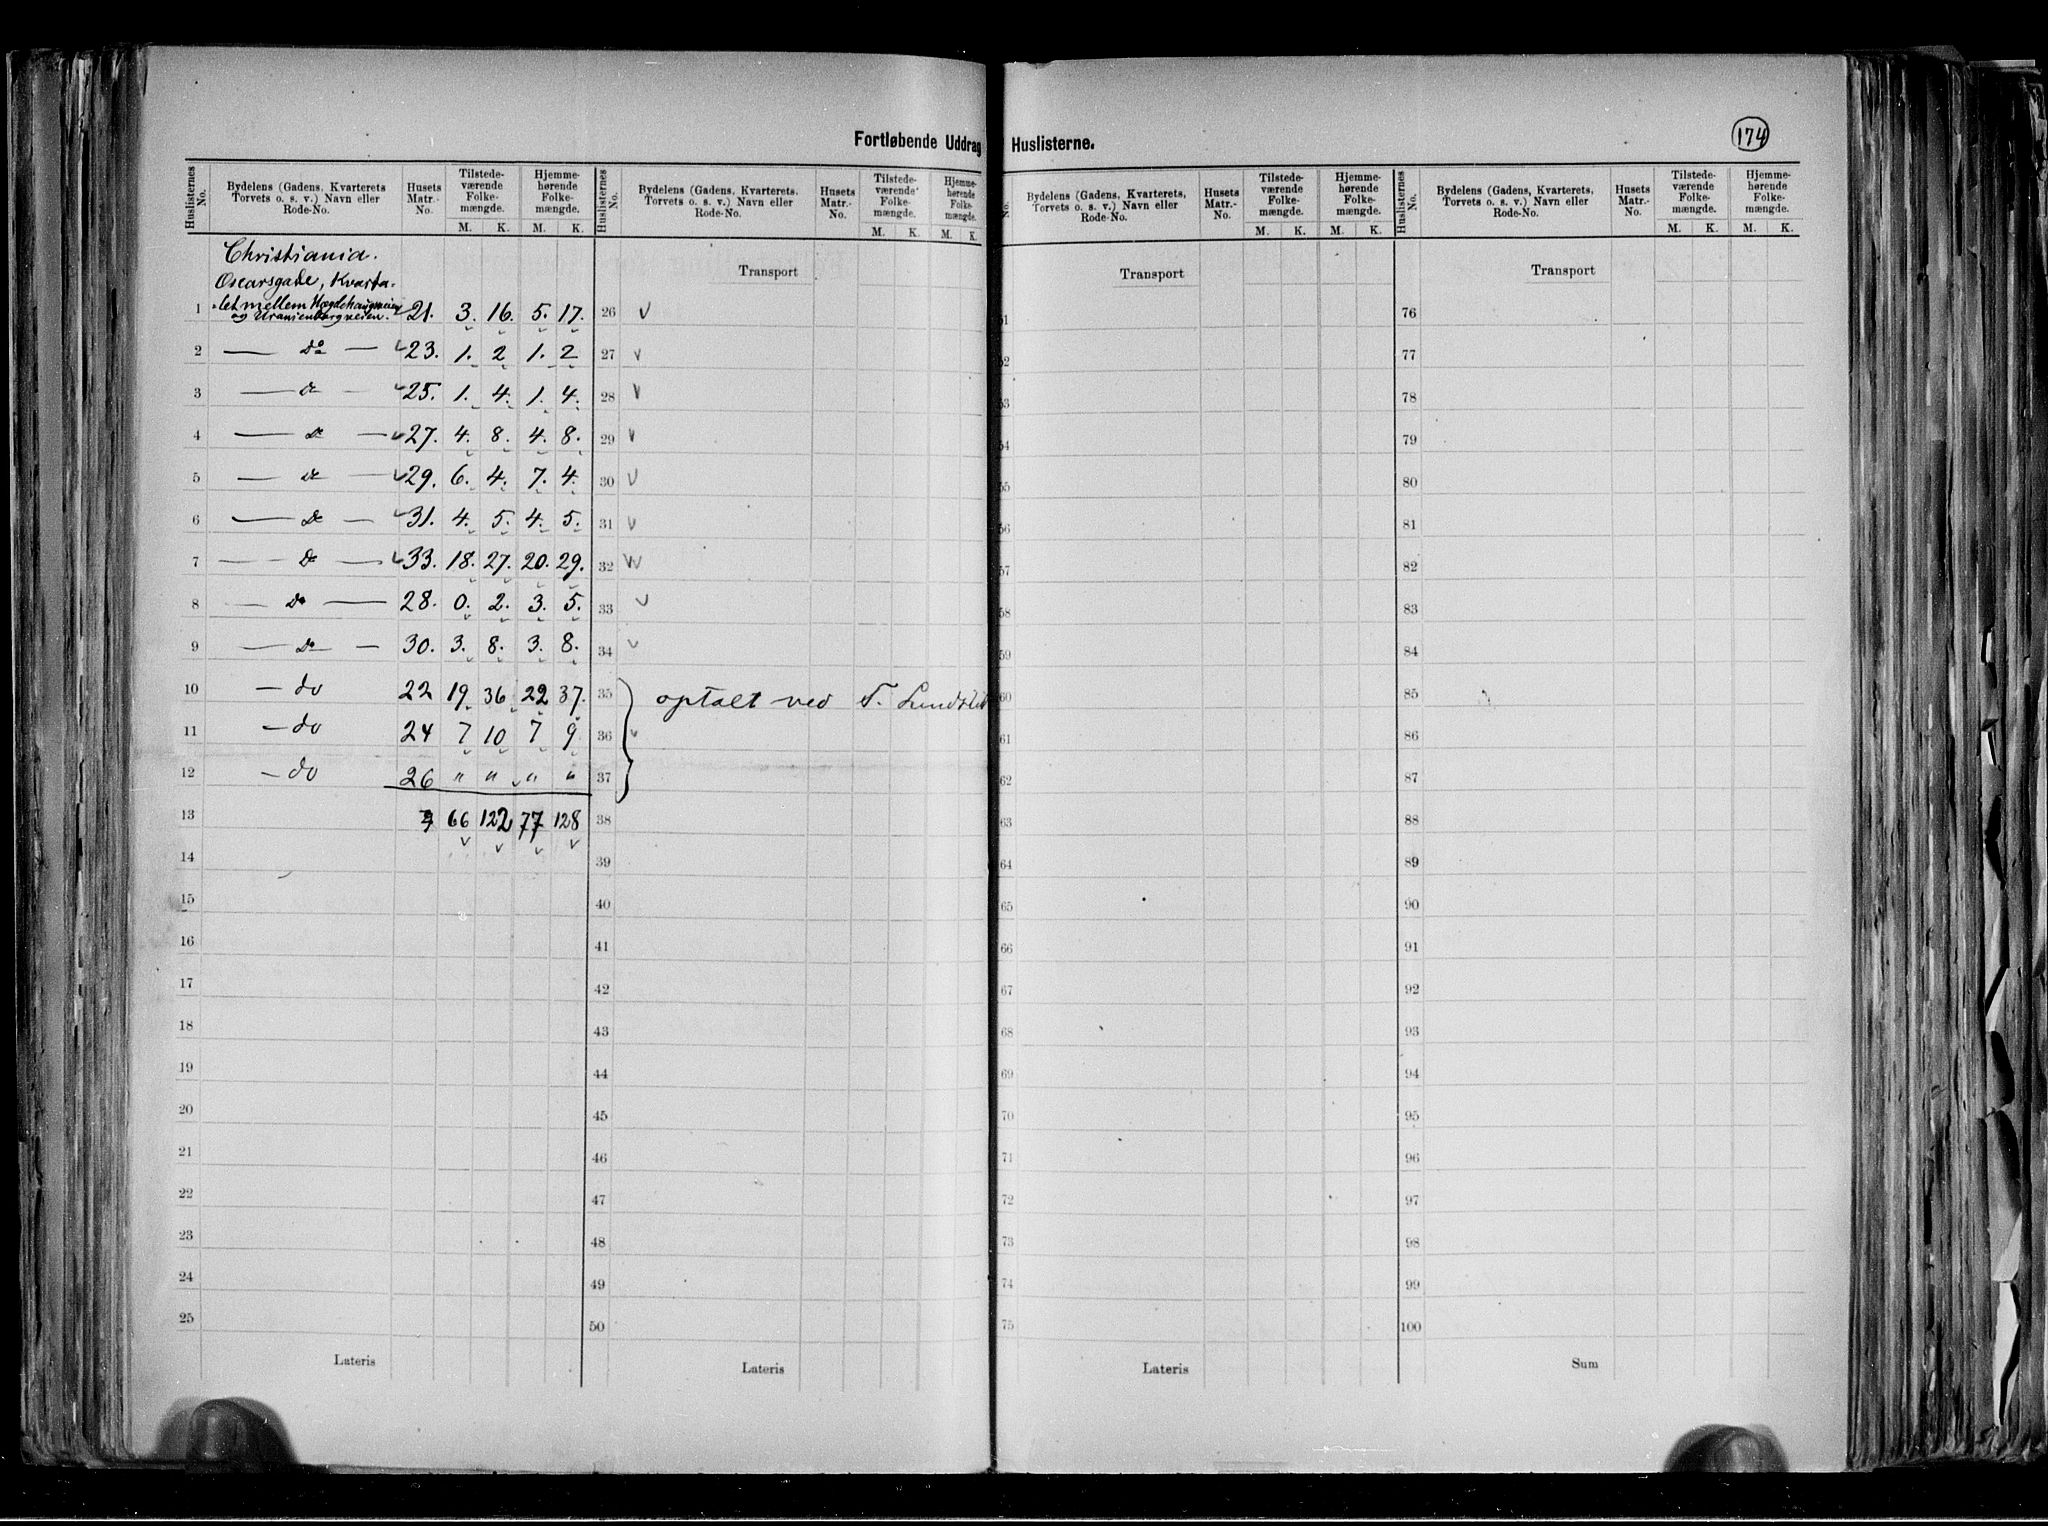 Fortløbende Uddrag Huslisterne.
174
Huslisternes No. | Bydelens (Gadens, Kvarterets Torvets o. s. v.) Navn eller Rode-No. | Husets Matr.-No. | Tilstedeværende Folkemængde. M. K. | Hjemmehørende Folkemængde. M. K.
Huslisternes No. | Bydelens (Gadens, Kvarterets. Torvets o. s. v.) Navn eller Rode-No. | Husets Matr.-No. | Tilstedeværende Folkemængde. M. K. | Hjemmehørende Folkemængde. M. K.
No. | Bydelens (Gadens, Kvarterets, Torvets o. s. v.) Navn eller Rode-No. | Husets Matr.-No. | Tilstedeværende Folkemængde. M. K. | Hjemmehørende Folkemængde. M. K.
Huslisternes No. | Bydelens (Gadens, Kvarterets, Torvets o. s. v.) Navn eller Rode-No. | Husets Matr.-No. | Tilstedeværende Folkemængde. M. K. | Hjemmehørende Folkemængde. M. K.
Christiania.
Oscarsgade, Kvarta-
1 -let mellem Hægdehaugveien og Uranienborgveien. 21. 3. 16. 5. 17.
2 — Do — 23. 1. 2 1. 2
3 — Do — 25. 1. 4. 1. 4.
4 — Do — 27. 4. 8. 4. 8.
5 — Do — 29. 6. 4. 7. 4.
6 — Do — 31. 4. 5. 4. 5.
7 — Do — 33. 18. 27. 20. 29.
8 — Do — 28. 0. 2. 3. 5.
9 — Do — 30. 3. 8. 3. 8.
10 — do 22 19 36 22 37.
11 — do 24 7 10 7 9
12 — do 26 " " " "
13 66 122 77 128
14
15
16
17
18
19
20
21
22
23
24
25
Lateris
Transport
26
27
28
29
30
31
32
33
34
35 optalt ved T.
36
37
38
39
40
41
42
43
44
45
46
47
48
49
50
Lateris
Transport
51
52
53
54
55
56
57
58
59
60
61
62
63
64
65
66
67
68
69
70
71
72
73
74
75
Lateris
Transport
76
77
78
79
80
81
82
83
84
85
86
87
88
89
90
91
92
93
94
95
96
97
98
99
100
Sum